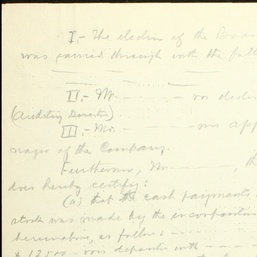 I.- The election of the Board
was carried through with the foll
II.- Mr - - - - - was declar
(Auditing Director)
III.- Mr. - - - - - was app
nager of the Company.
Furthermore, Mr - - - - -,
does hereby certify:
(a) that the cash payments
stock was made by the incorporation
hereinafter, as follows - - - - -
$ 12500 - was deposited with - - - -